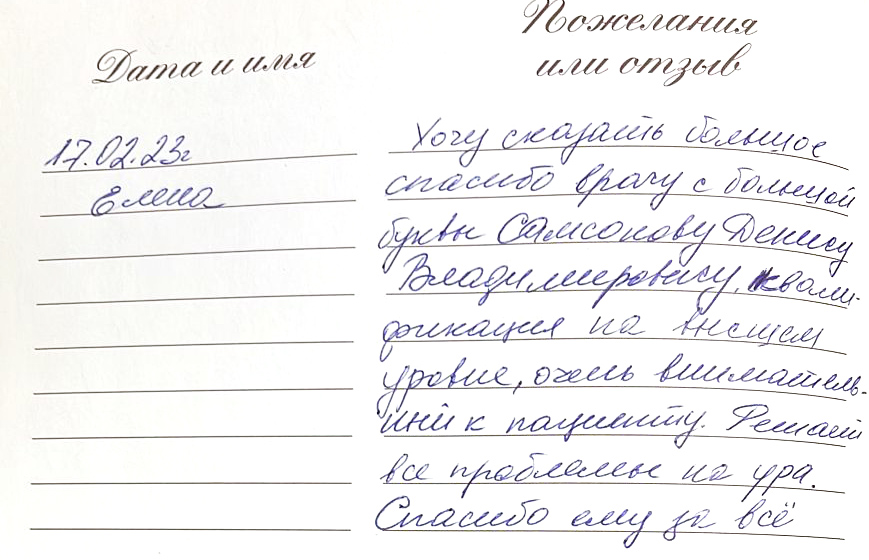 Дата и имя
Пожелания
или отзыв
17.02.23г
Елена
Хочу сказать большое
спасибо врачу с большой
буквы Самсонову Денису
Владимировичу, квали-
фикация на высшем
уровне, очень вниматель-
ный к пациенту. Решает
все проблемы на ура.
Спасибо ему за всё